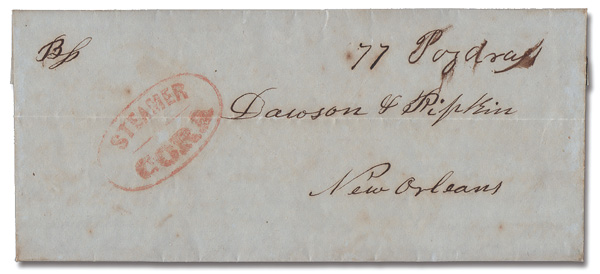 77 Poydras
STEAMER
CORA
Dawson & Pipkin
New Orleans